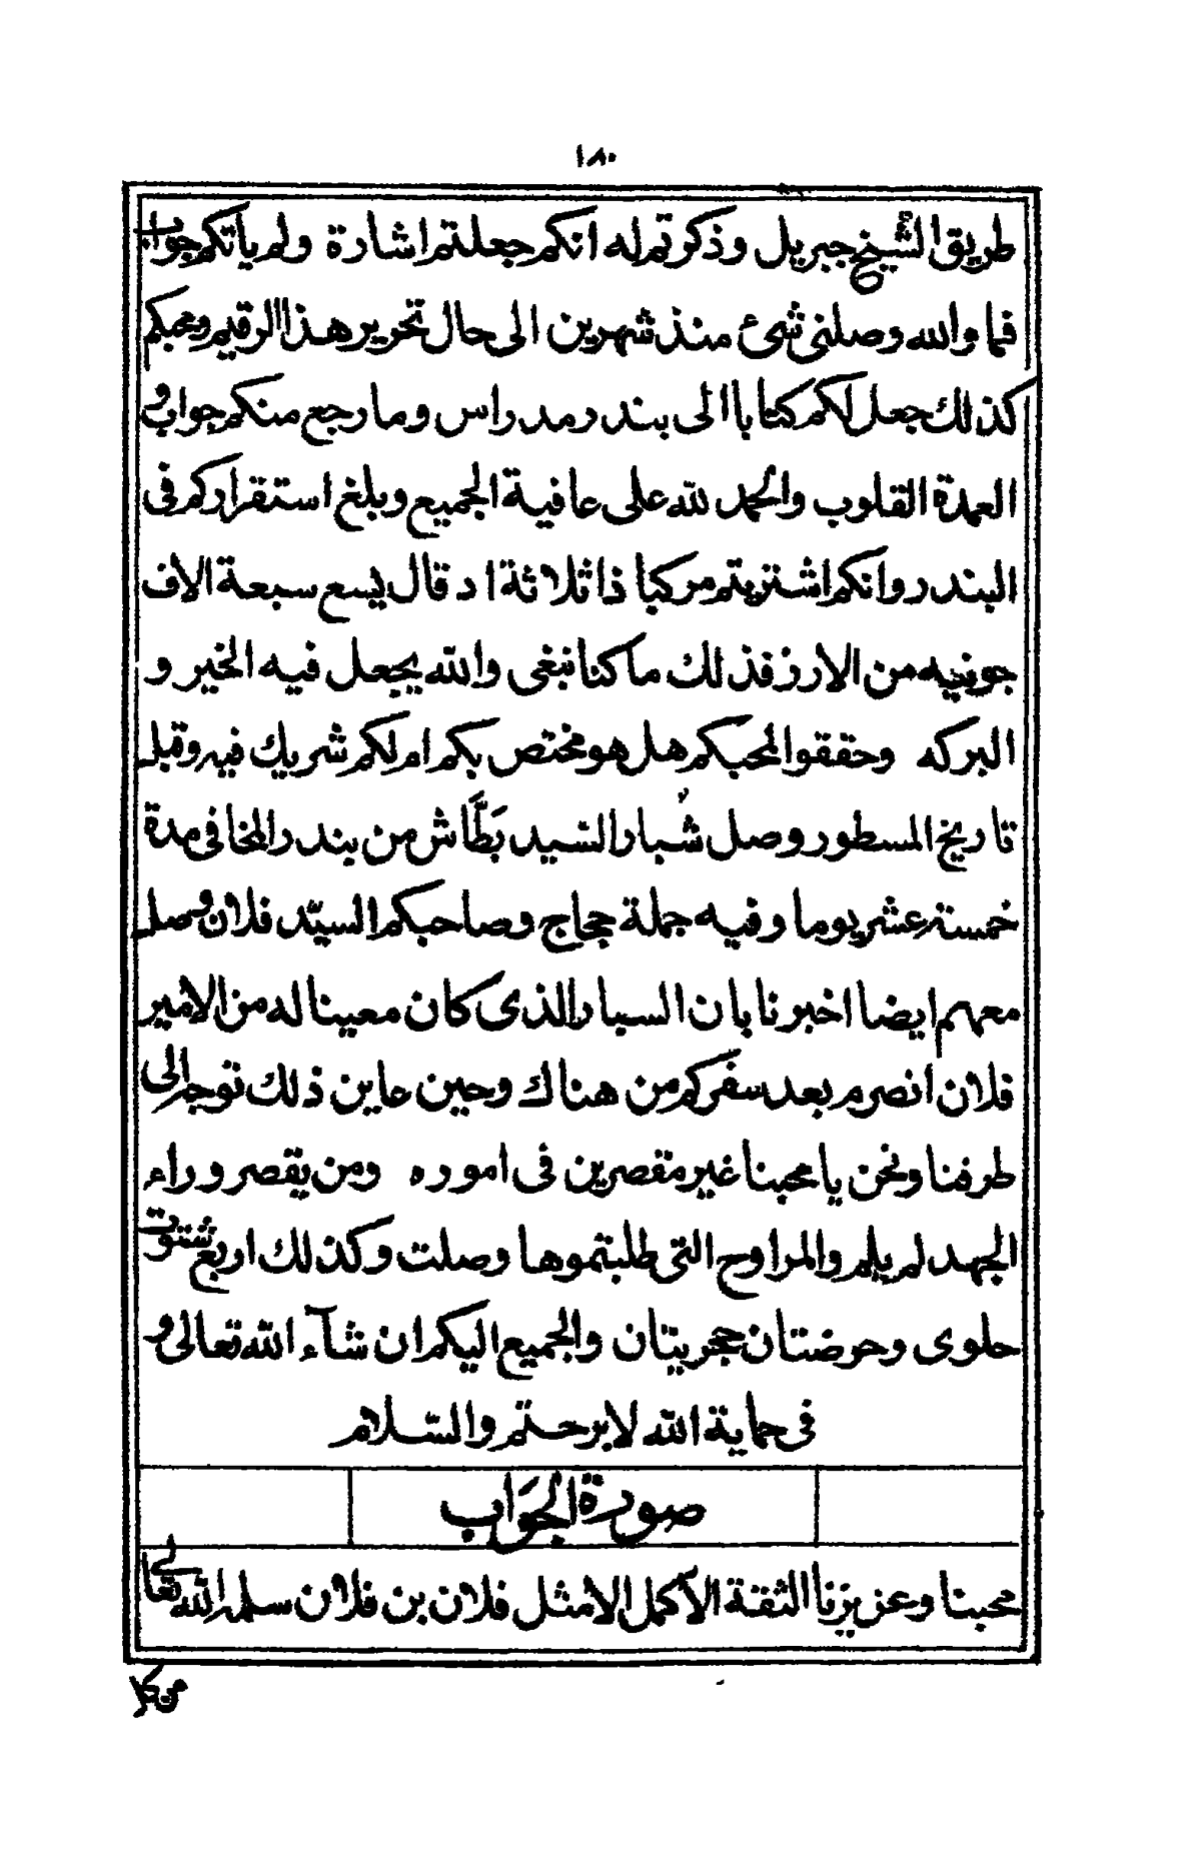 ١٨٠
طريق الشيخ جبريل وذكرتم له انكم جعلتم اشارة ولم ياتكم جواب
فما والله وصلنى شئ منذ شهرين الى حال تحرير هذا الرقيم ومحبكم
كذلك جعل لكم كتابا الى بندر مدراس وما رجع منكم جواب و
العمدة القلوب والحمد لله على عافية الجميع وبلغ استقراركم فى
البندر وانكم اشتريتم مركبا ذا ثلاثة ادقال يسع سبعة الاف
جونيه من الارز فذلك ما كنا نبغى والله يجعل فيه الخير و
البركه وحققوا لمحبكم هل هو مختص بكم ام لكم شريك فيه وقبل
تاريخ المسطور وصل شُبار السّيد بَطَّاش من بندر المخا فى مدة
خمسة عشر يوما وفيه جملة حجاج وصاحبكم السيّد فلان وصل
معهم ايضا اخبرنا بان السبار الذى كان معينا له من الامير
فلان انصرم بعد سفركم من هناك وحين عاين ذلك توجه الى
طرفنا ونحن يا محبنا غير مقصرين فى اموره ومن يقصر وراء
الجهد لم يلم والمراوح التى طلبتموها وصلت وكذلك اربع شنتوت
حلوى وحرضتان حجريتان والجميع اليكم ان شآء الله تعالى و
فى حماية الله لا برحتم والسّلام
صورة الجَوَاب
محبنا وعزيزنا الثقة الاكمل الامثل فلان بن فلان سلمه الله تعالى
من كل